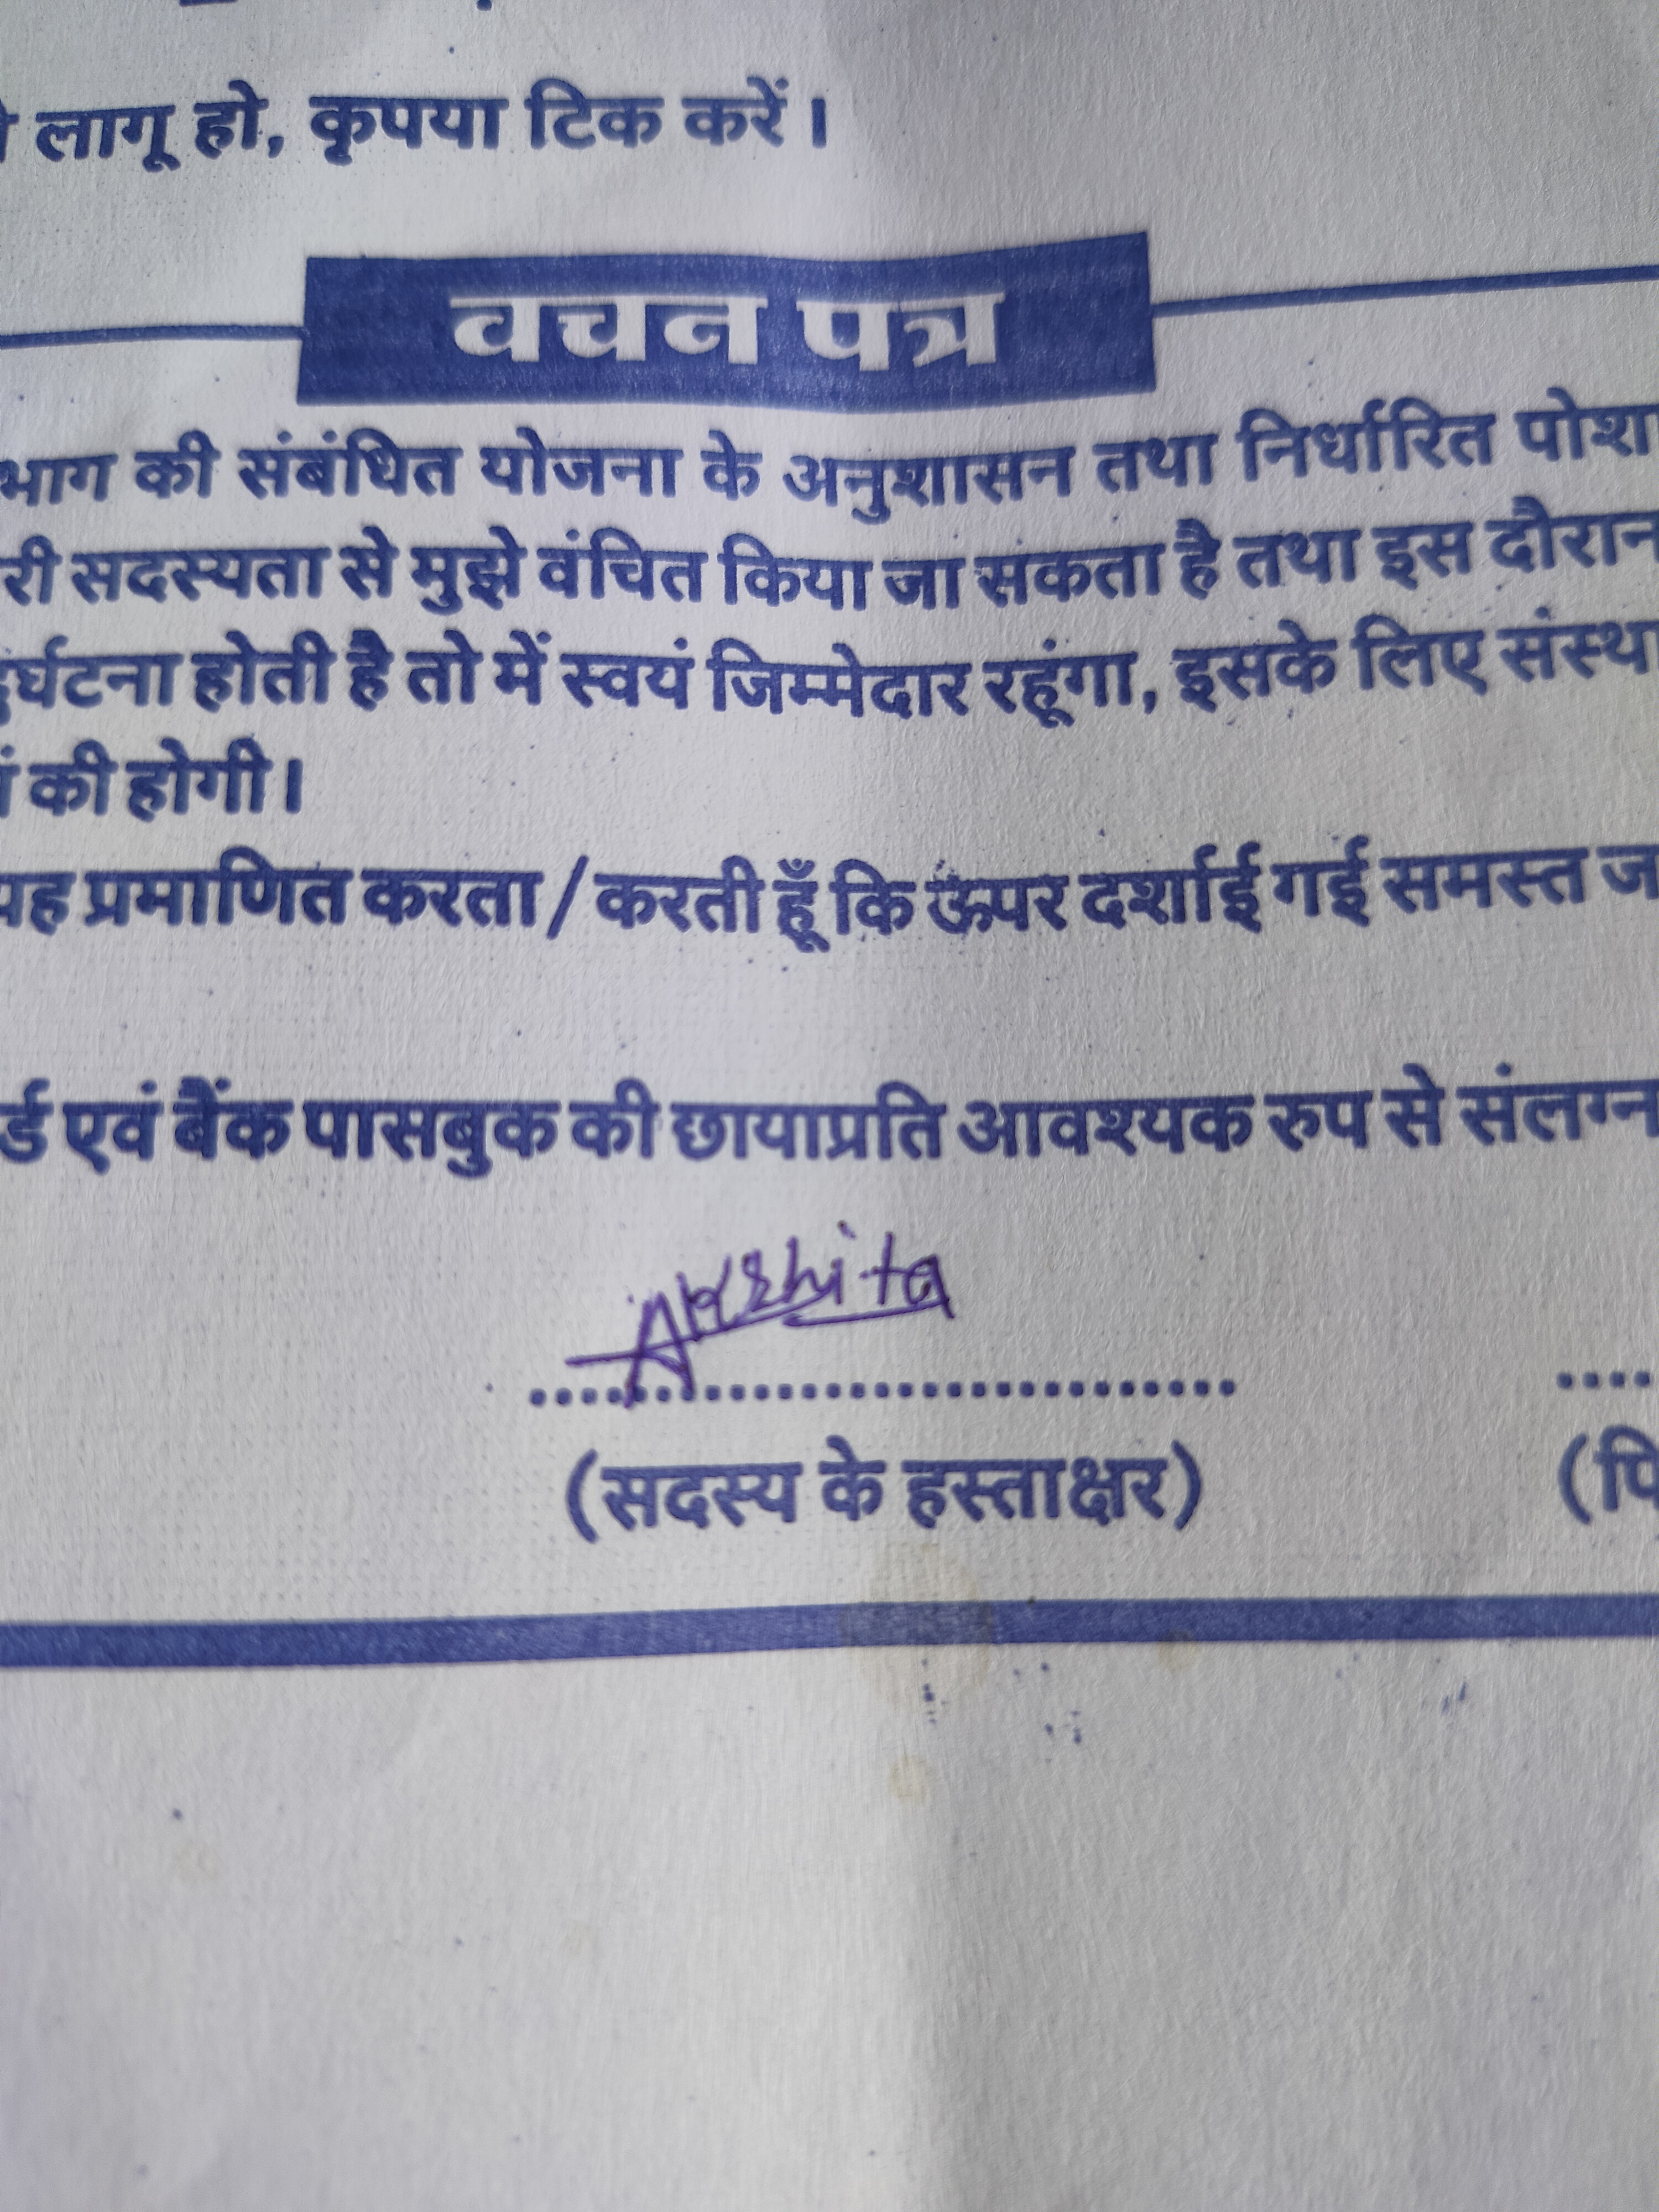 लागू हो, कृपया टिक करें।
वचन पत्र
भाग की संबंधित योजना के अनुशासन तथा निर्धारित पोशा
री सदस्यता से मुझे वंचित किया जा सकता है तथा इस दौरान
दुर्घटना होती है तो में स्वयं जिम्मेदार रहूंगा, इसके लिए संस्था
की होगी।
यह प्रमाणित करता / करती हूँ कि ऊपर दर्शाई गई समस्त ज
र्ड एवं बैंक पासबुक की छायाप्रति आवश्यक रुप से संलग्न
Akshita
(सदस्य के हस्ताक्षर)
(पि